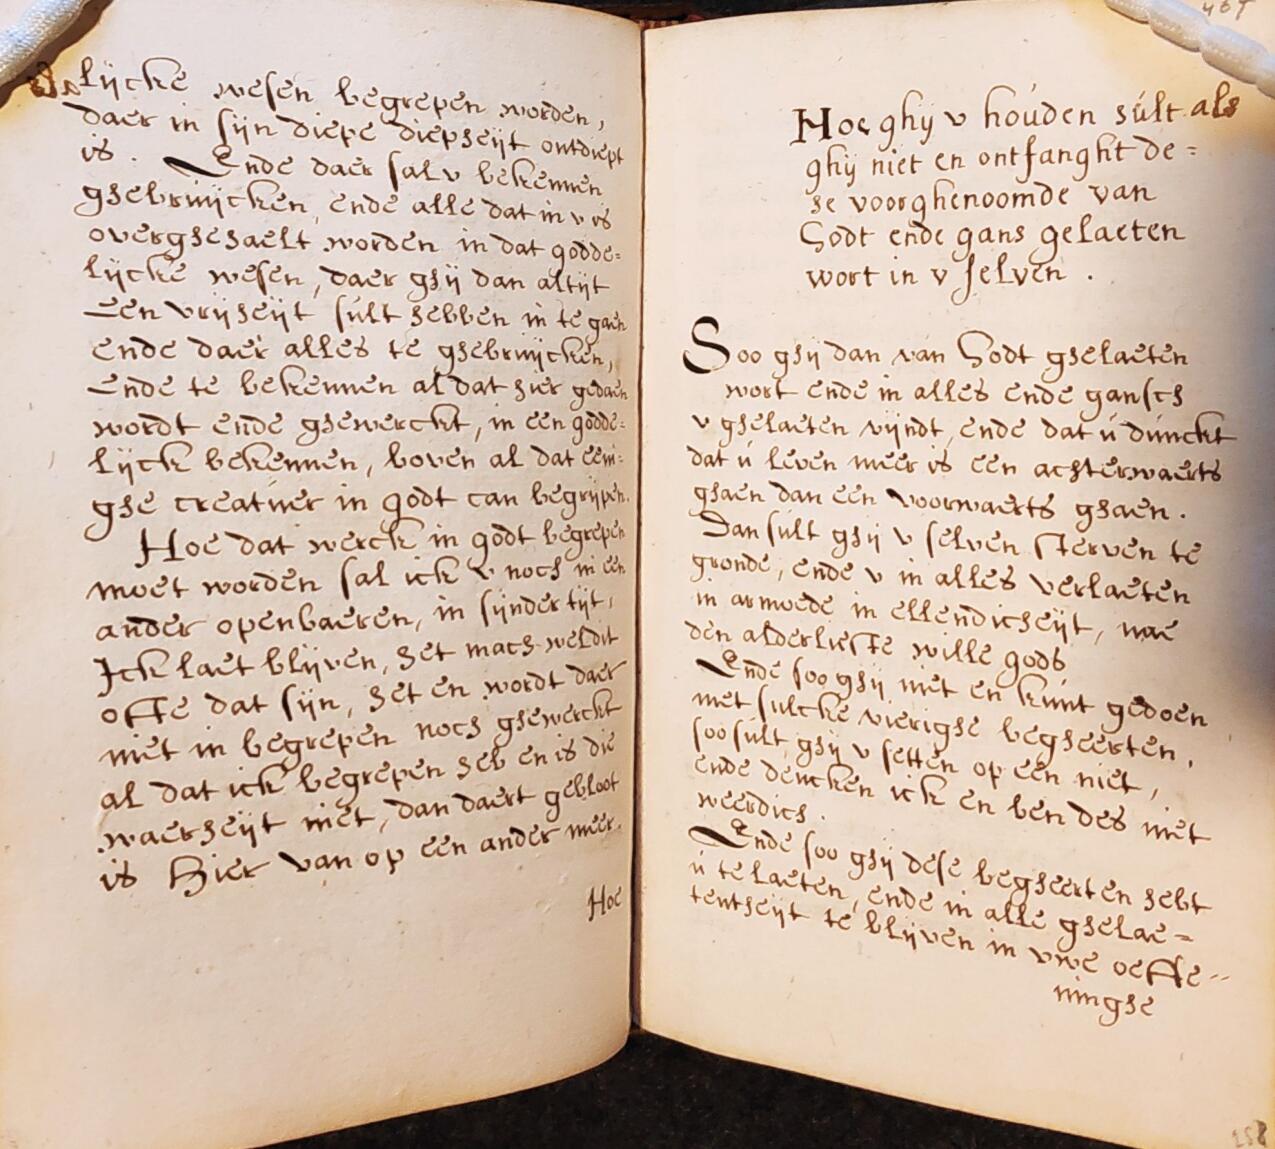 lijcke wesen begrepen worden,
daer in sijn diepe diepheijt ontdiept
is. Ende daer sal v bekennen
ghebruijcken, ende alle dat in v is
overghehaelt worden in dat godde=
lijcke wesen, daer ghij dan altijt
Een vrijheijt sult hebben in te gaen
ende daer alles te ghebruijcken,
Ende te bekennen al dat hier gedaen
wordt ende ghewerckt, in een godde=
lijck bekennen, boven al dat eeni=
ghe creatuer in godt can begrijpen.
Hoe dat werck in godt begrepen
moet worden sal ick v noch in een
ander openbaeren, in sijnder tijt,
Ick laet blijven, het mach weldit
ofte dat sijn, het en wordt daer
niet in begrepen noch ghewerckt
al dat ick begrepen heb en is die
waerheijt niet, dan daert gebloot
is hier van op een ander meer.
Hoe
467
Hoe ghij v houden sult als
ghij niet en ontfanght de=
se voorghenoomde van
Godt ende gans gelaeten
wort in v selven.
Soo ghij dan van Godt ghelaeten
wort ende in alles ende gansch
v ghelaeten vijndt, ende dat ú dúnckt
dat ú leven meer is een achterwaerts
ghaen dan een voorwaerts ghaen.
Dan sult ghij v selven sterven te
gronde, ende v in alles verlaeten
in armoede in ellendicheijt, nae
den alderliefste wille gods
Ende soo ghij niet en kunt gedoen
met sulcke vierighe begheerten,
soo sult ghij v setten op een niet,
ende dencken ick en ben des niet
weerdich.
Ende soo ghij dese begheerten hebt
ú te laeten, ende in alle ghelae=
tentheijt te blijven in vwe oeffe=
ninghe
258